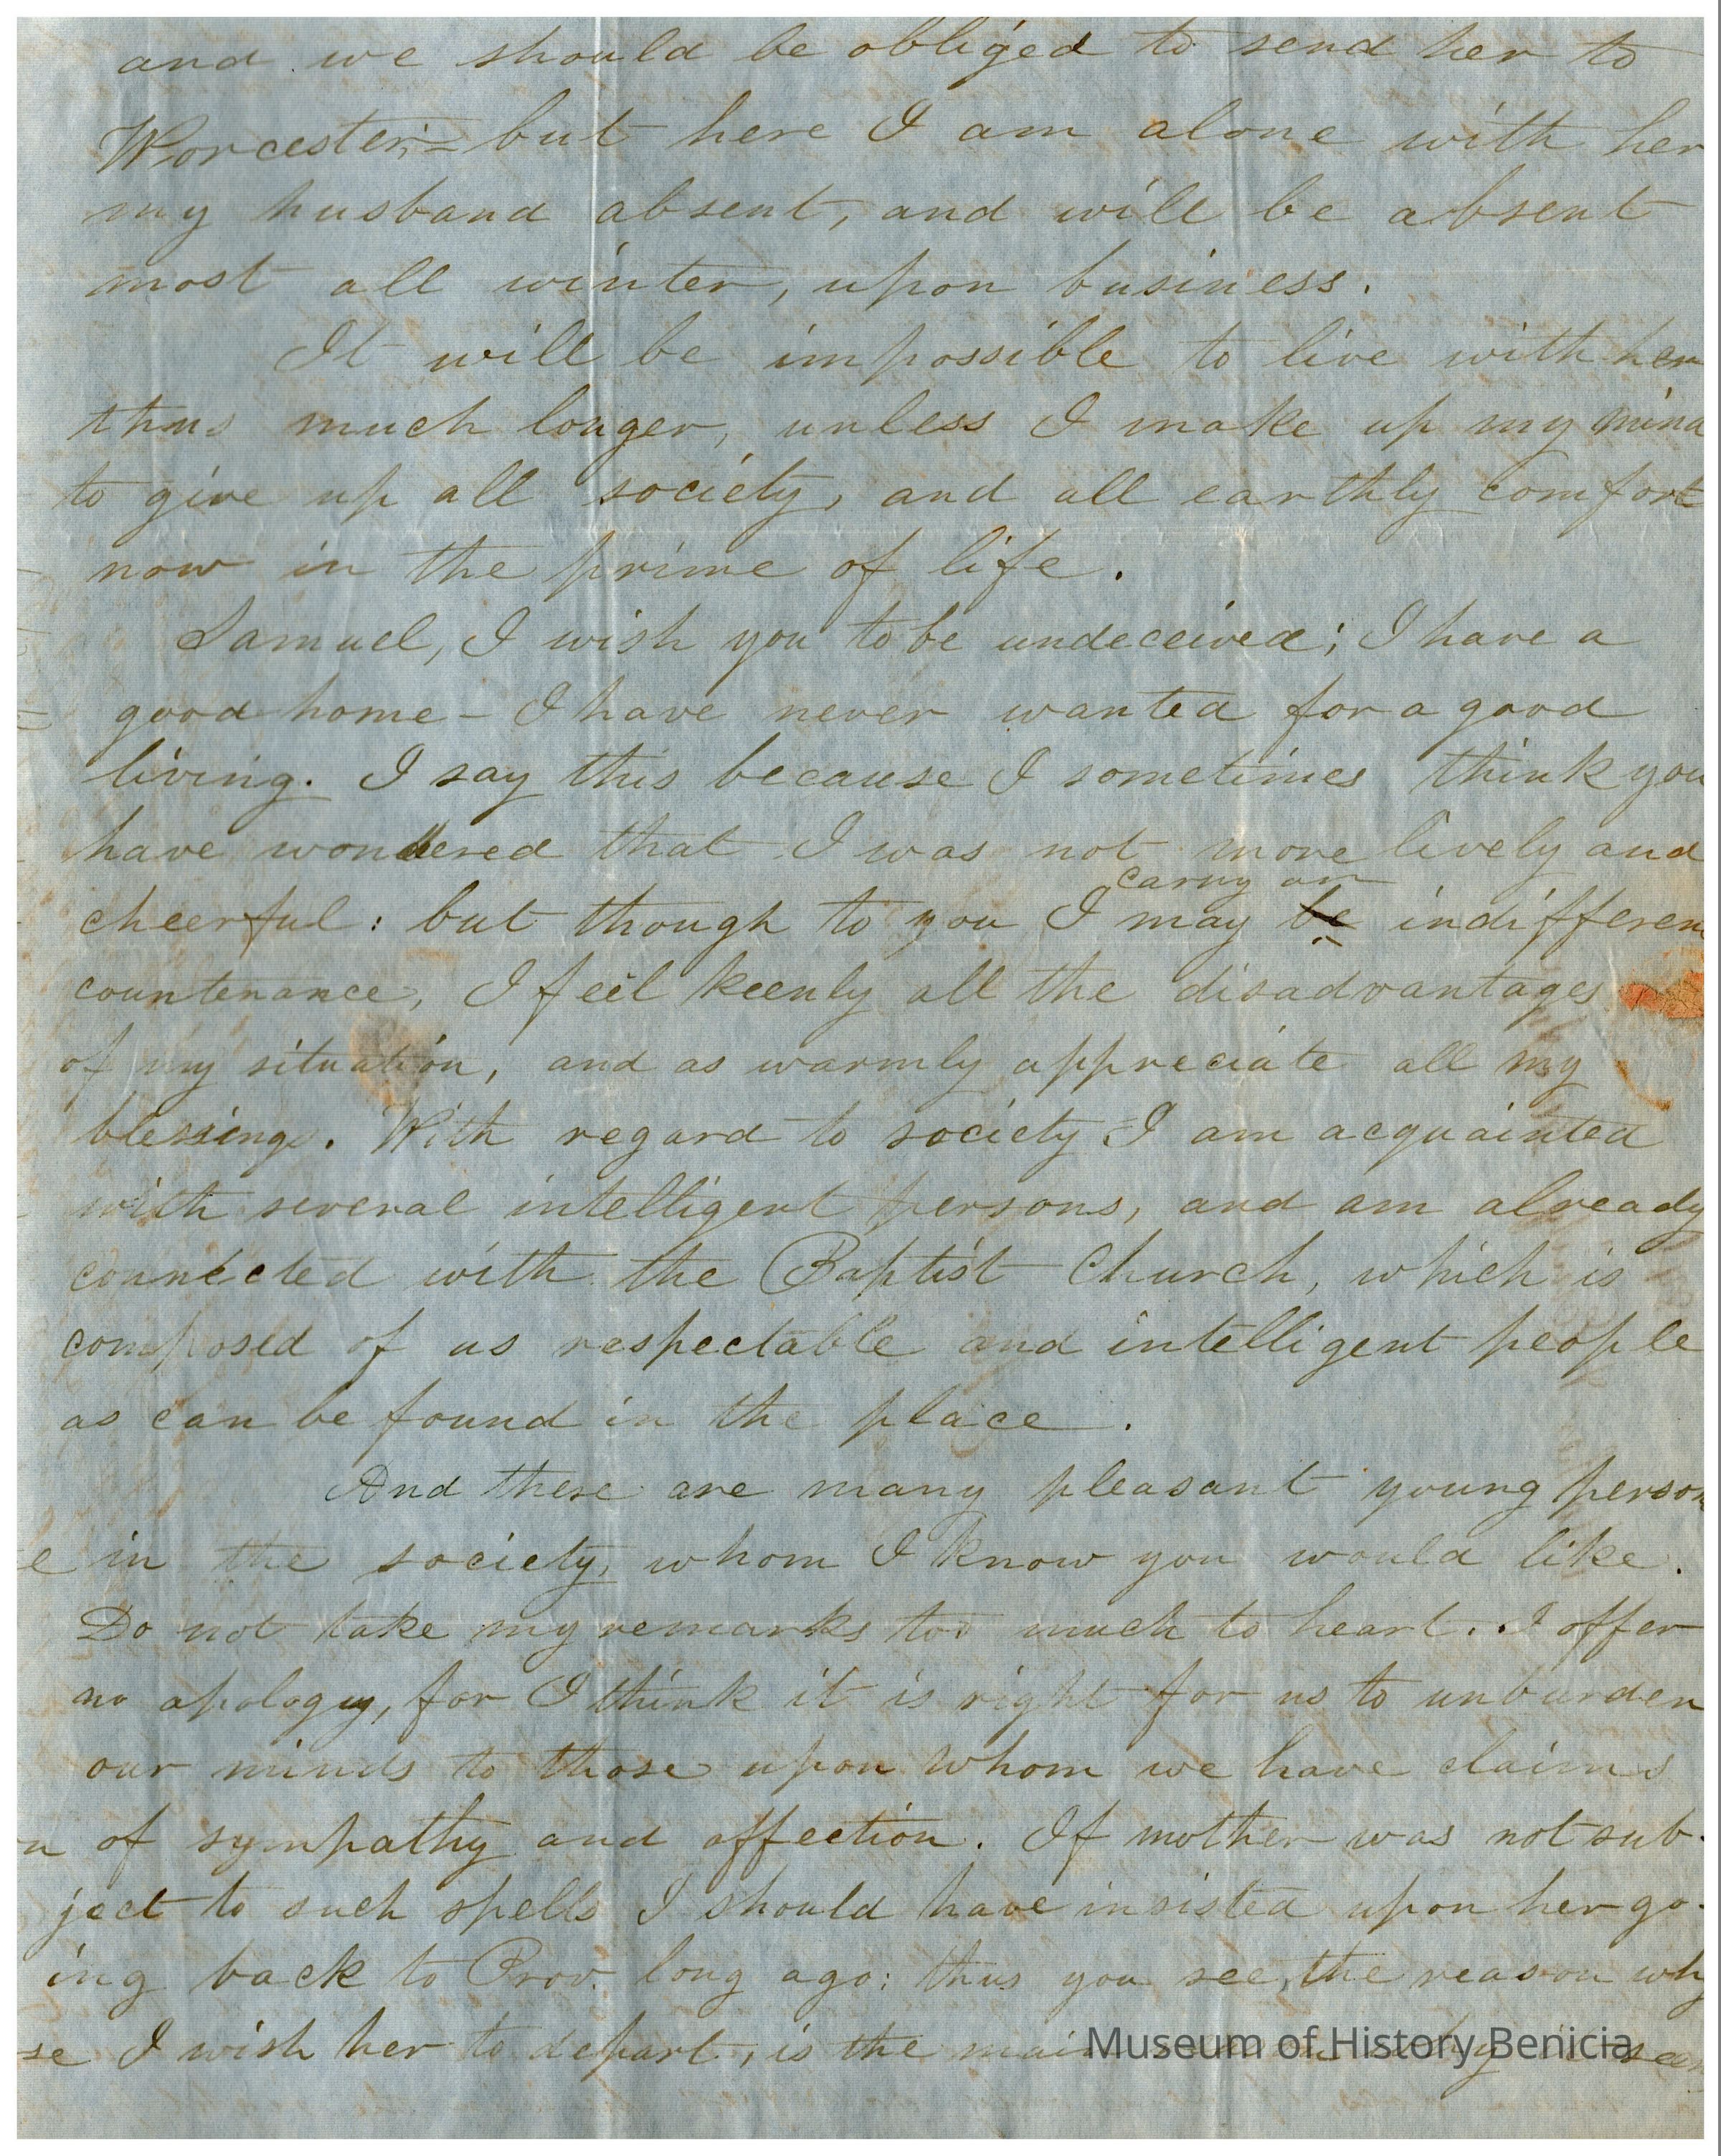 and we should be obliged to send her to
Worcester;= but here I am alone with her
my husband absent, and will be absent
most all winter, upon business.
It will be impossible to live with her
thus much longer, unless I make up my mind
to give up all society, and all earthly comfort
now in the prime of life.
Samuel, I wish you to be undeceived; I have a
good home - I have never wanted for a good
living. I say this because I sometimes think you
have wondered that I was not more lively and
carry an
cheerful: but though to you I may be indifferen
countenance, I feel keenly all the disadvantages
of my situation, and as warmly appreciate all my
blessings. With regard to society I am acquainted
with several intelligent persons, and am already
connected with the Baptist Church, which is
composed of as respectable and intelligent people
as can be found in the place.
And there are many pleasant young person
e in the society, whom I know you would like.
Do not take my remarks too much to heart. I offer
no apology, for I think it is right for us to unburden
our minds to those upon whom we have claims
n of sympathy and affection. If mother was not sub-
ject to such spells I should have insisted upon her go-
ing back to Prov. long ago: thus you see, the reason why
se I wish her to depart, is the
Museum of History Benicia